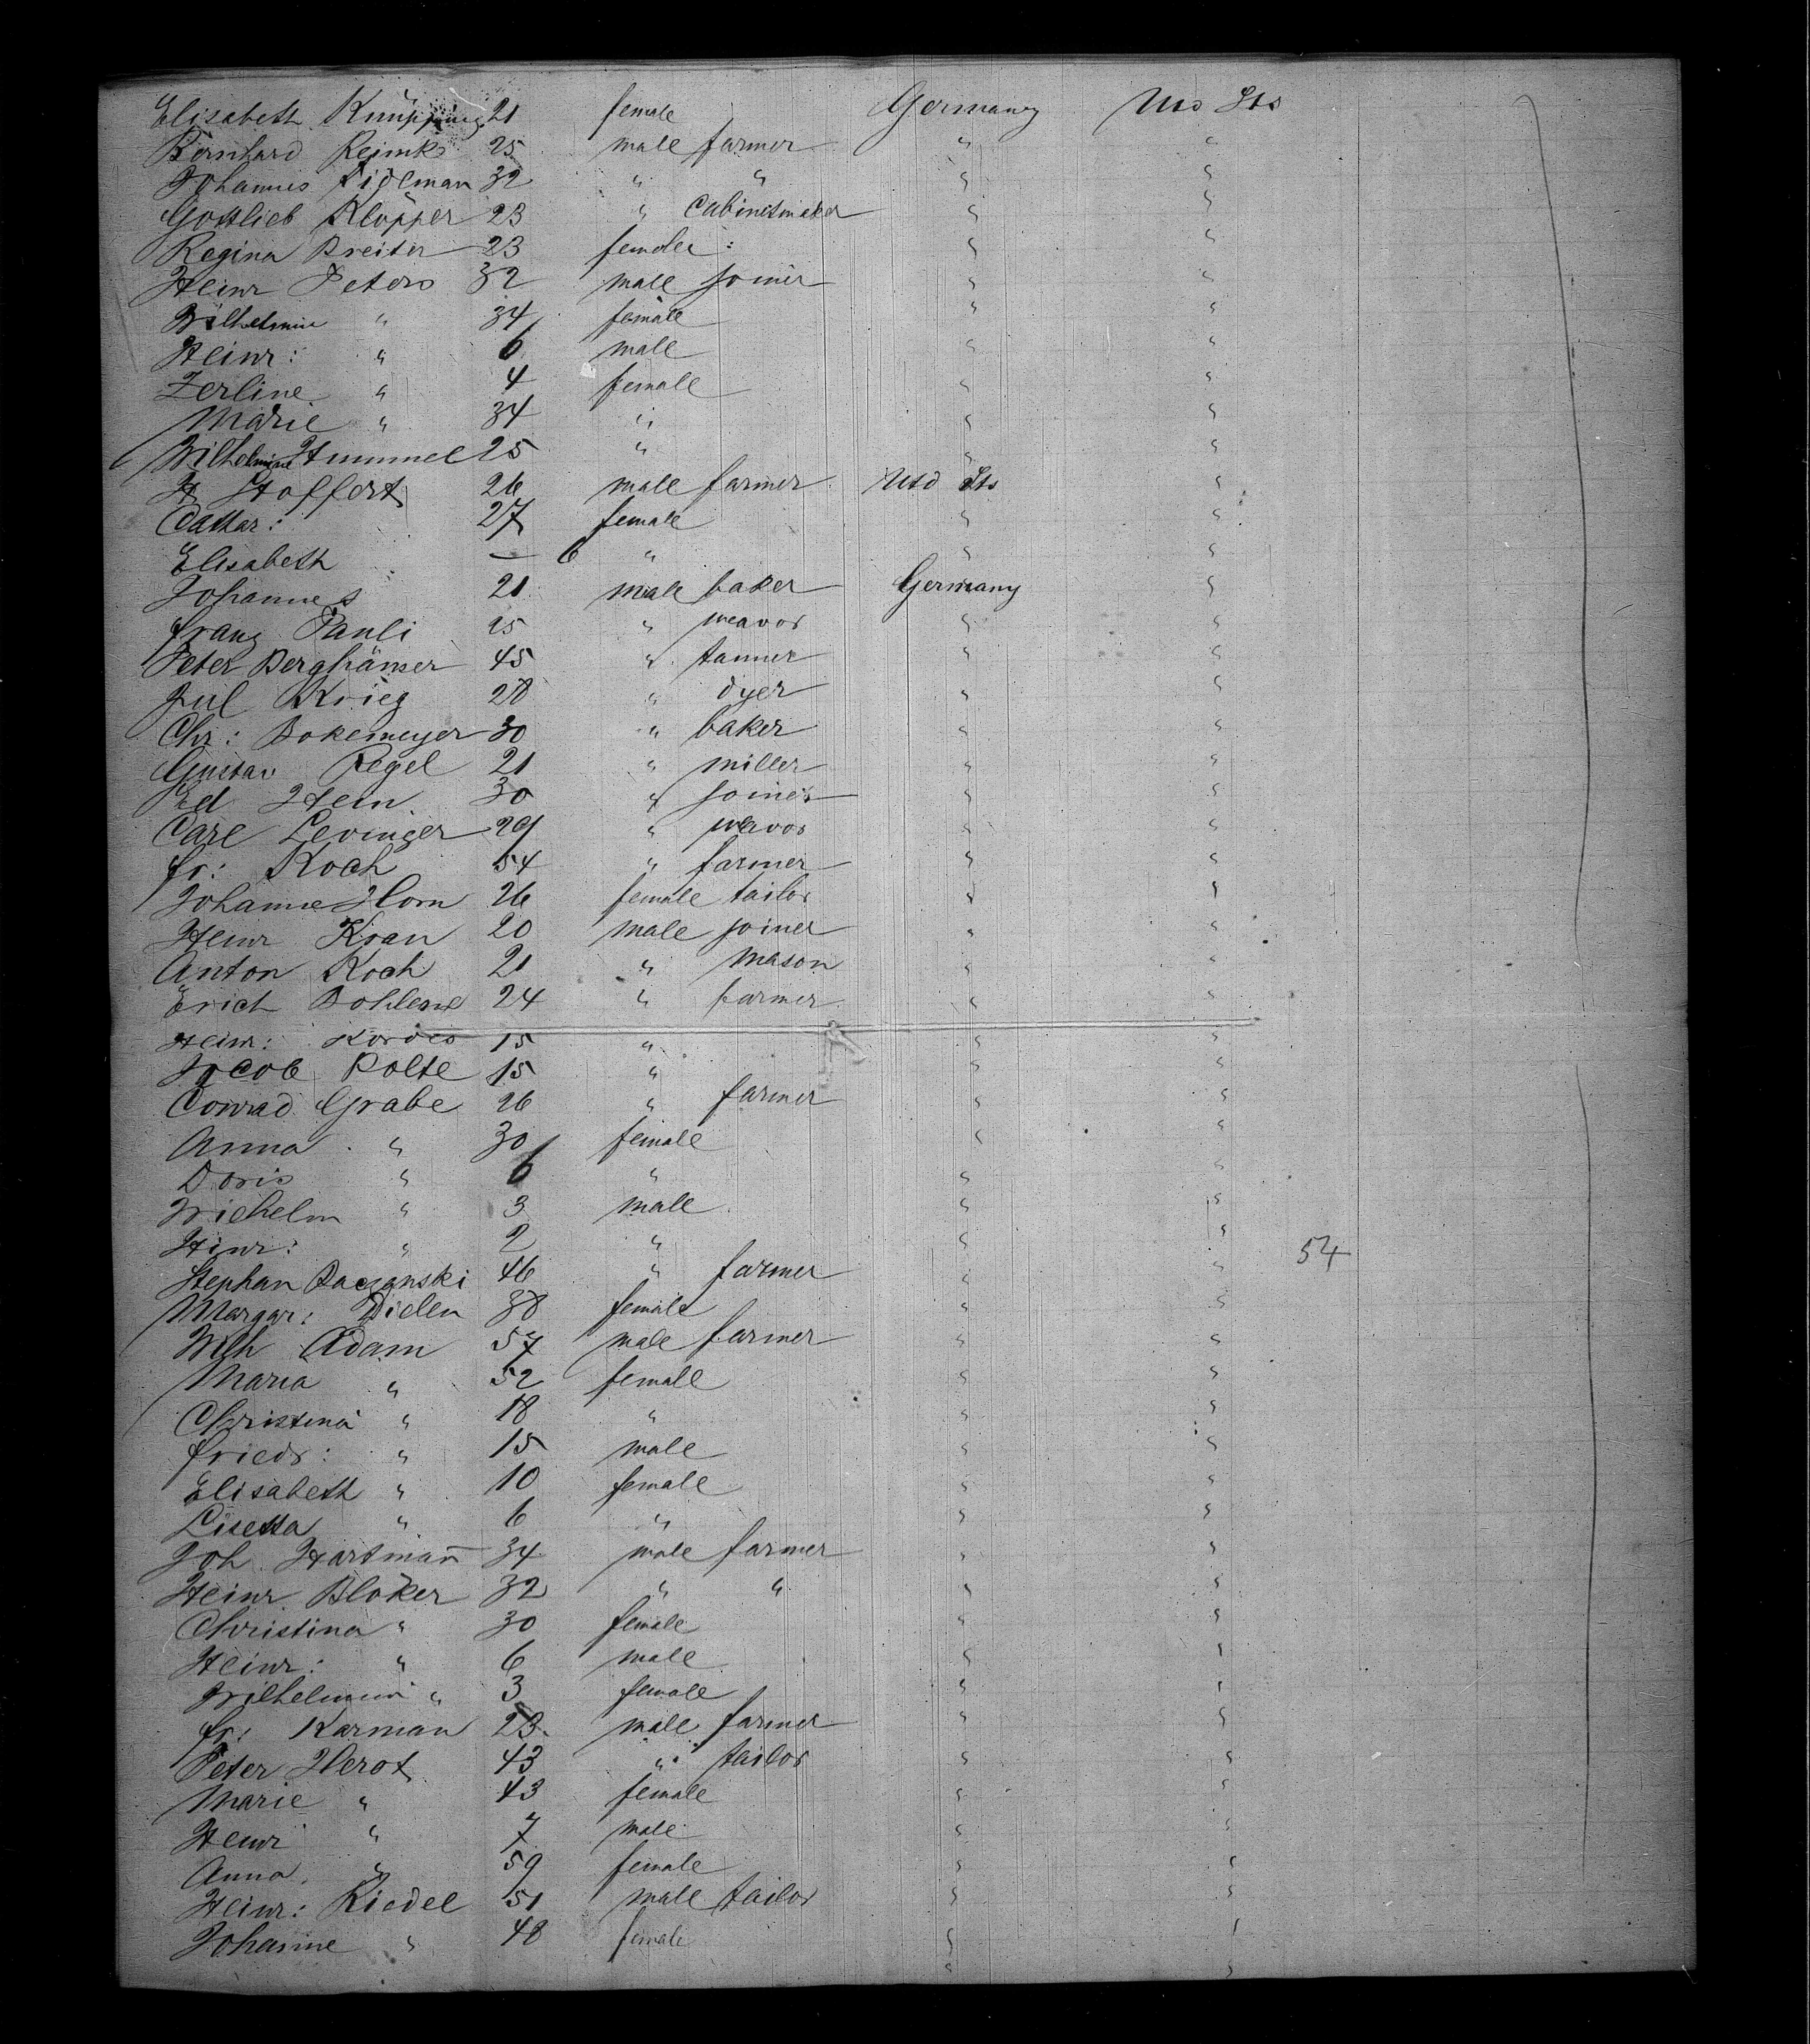 Elisabeth Knüpping 21 female Germany Uts Sts
Bernhard Reimke 25 male farmer " "
Johannes Sideman 32 " " " "
Gottlieb Klöpper 23 " Cabinetmaker " "
Regina Breiter 23 female : " "
Heinr Peters 32 male joiner " "
Wilhelmine " 34 female " "
Heinr: " 6 male " "
Zerline " 4 female " "
Marie " 34 " " "
Wilhelmine Hummel 25 " " "
H Hoffert 26 male farmer Utd Sts "
Cathar: 27 female " "
Elisabeth — 6 " " "
Johannes 21 male baker Germany "
franz Pauli 25 " weavor " "
Peter Berghäuser 45 " tanner " "
Jul Krieg 28 " dyer " "
Chr: Bokemeyer 30 " baker " "
Gustav Pegel 21 " miller " "
Ed Hein 30 " joiner " "
Carl Levinger 29 " weavor " "
fr: Koch 54 " farmer " "
Johanne Horn 26 female tailor " "
Heinr Kran 20 male joiner " "
Anton Koch 21 " mason " "
Erich Bohlene 24 " farmer " "
Heinr: Kordes 15 " " "
Jacob Bolte 15 " " "
Conrad Grabe 26 " farmer " "
Anna " 30 female " "
Doris " 6 " " "
Wilhelm " 3 male " "
Hinr: " 2 " " " 54
Stephan 46 " farmer " "
Margar: Dielen 38 female " "
Wilh Adam 57 male farmer " "
Maria " 52 female " "
Christina " 18 " " "
friedr: " 15 male " "
Elisabeth " 10 female " "
Lisetta " 6 " " "
Joh Hartman̅ 34 male farmer " "
Heinr Bloker 32 " " " "
Christina " 30 female " "
Heinr: " 6 male " "
Wilhelmine " 3 female " "
fr: Karman 23 male farmer " "
Peter Herot 43 " tailor " "
Marie " 43 female " "
Heinr " 7 male " "
Anna " 59 female " "
Heinr: Riedel 51 male tailor " "
Johanne " 48 female " "
" "